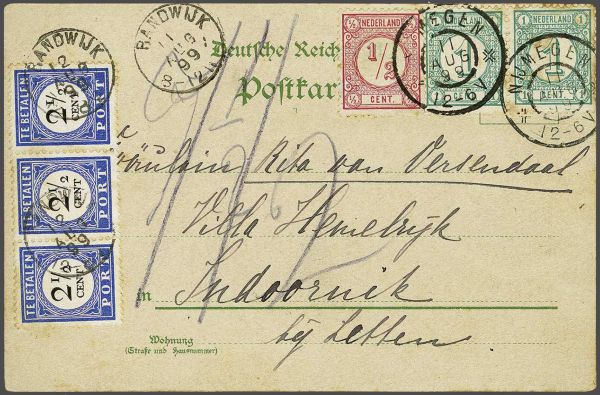 RANDWIJK
11 AUG 99
8-12V
Deutsche Reich
Postkar
½ NEDERLAND ½
1/2
½ CENT. ½
NIJMEGEN
11 AUG 99
12-6V
1 NEDERLAND 1
1 CENT. 1
NIJMEGEN
12-6V
RANDWIJK
12
TE BETALEN
2½ CENT
PORT
TE BETALEN
2½ CENT
PORT
TE BETALEN
2½ CENT
PORT
Fräulein Rita van Versendaal
Villa Hemelrijk
in Indoornik
bij Zetten
Wohnung
(Straße und Hausnummer)